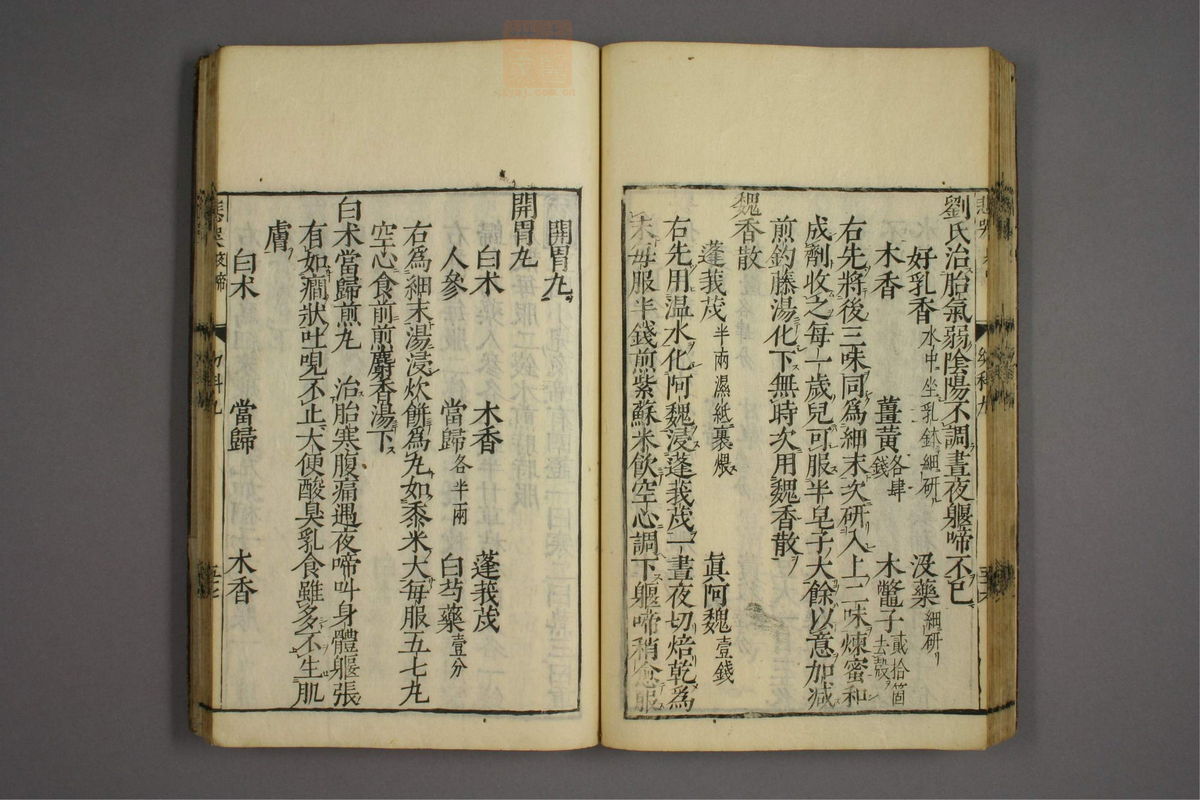 劉氏治胎氣弱陰陽不調晝夜軀啼不已
好乳香水中坐乳鉢細研 沒藥細研
木香 薑黃各肆錢 木鼈子貳拾箇去殼
右先將後三味同爲細末次研入上二味煉蜜和
成劑收之每一歲兒可服半皂子大餘以意加减
煎釣藤湯化下無時次用魏香散
魏香散
蓬莪茂半兩濕紙裹煨 眞阿魏壹錢
右先用温水化阿魏浸蓬莪茂一晝夜切焙乾爲
末每服半錢煎紫蘇米飲空心調下軀啼稍愈服
開胃丸
開胃丸
白术 木香 蓬莪茂
人參 當歸各半兩 白芍藥壹分
右爲細末湯浸炊餅爲丸如黍米大每服五七丸
空心食前煎麝香湯下
白术當歸煎丸 治胎寒腹痛遇夜啼叫身體軀張
有如癇狀吐哯不止大便酸臭乳食雖多不生肌
膚
白术 當歸 木香